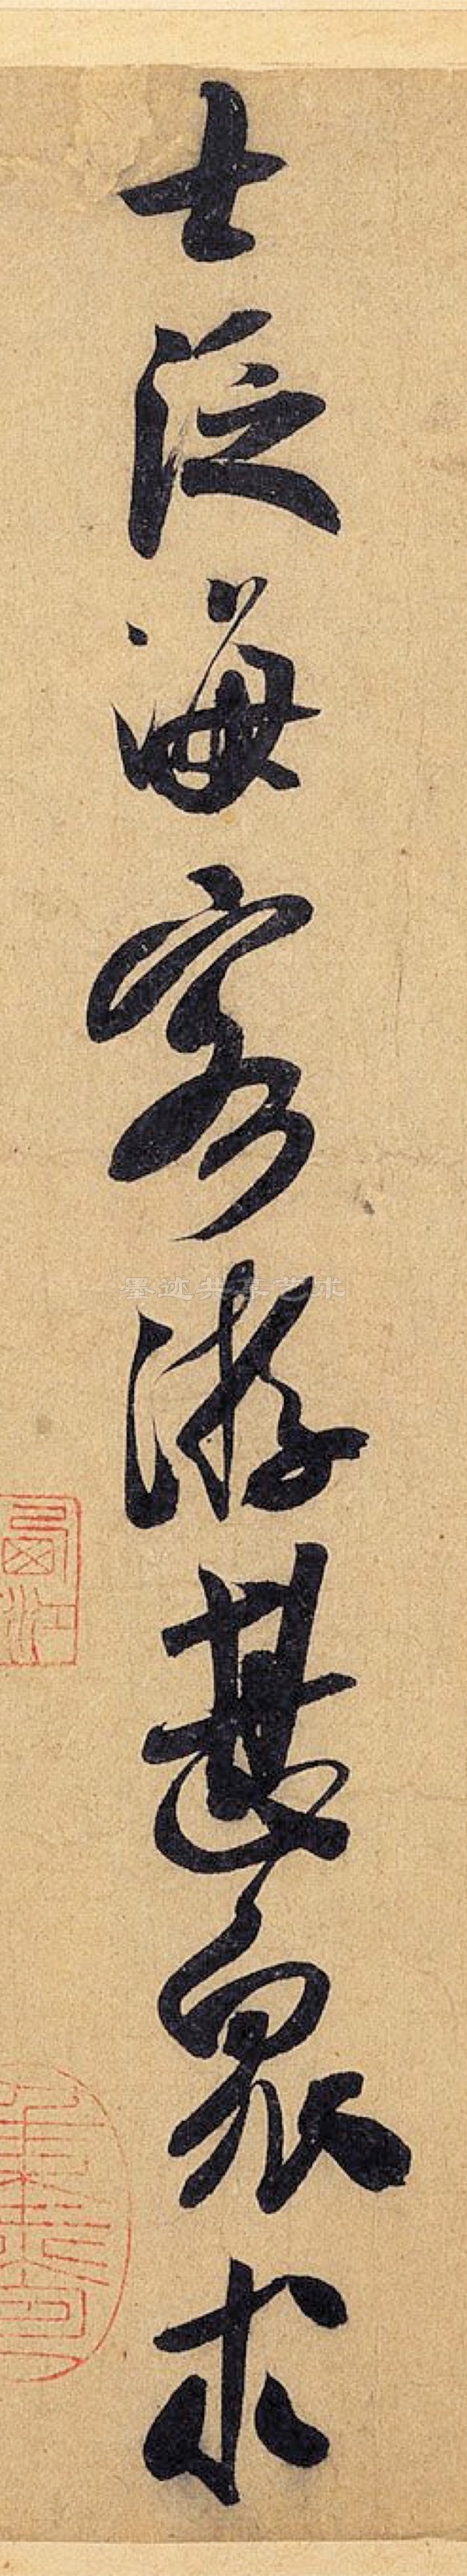 士泛海客游甚眾求
墨迹共享艺术